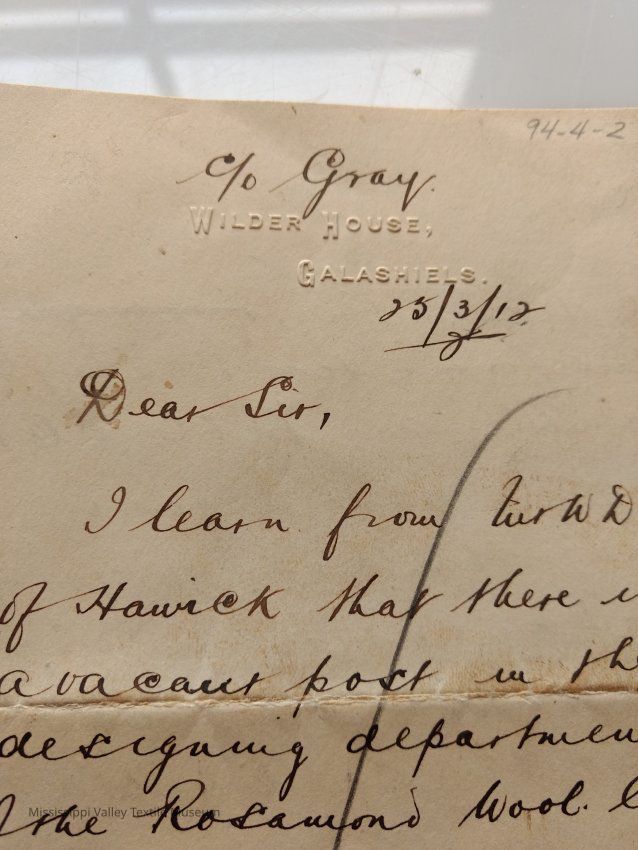 94-4-2
c/o Gray.
WILDER HOUSE,
GALASHIELS.
25/3/12
Dear Sir,
I learn from W D
of Hawick that there
a vacant post in the
designing departmen
the Rosamond Wool.
Mississippi Valley Textile Museum